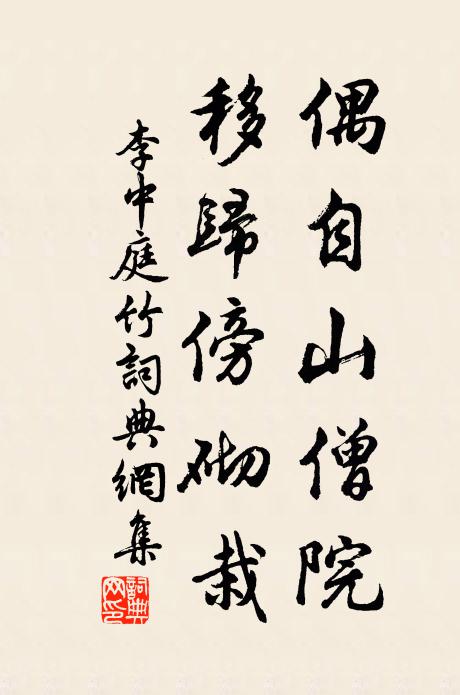 偶自山僧院
移歸傍砌栽
李中庭竹詞典網集
詞典網印